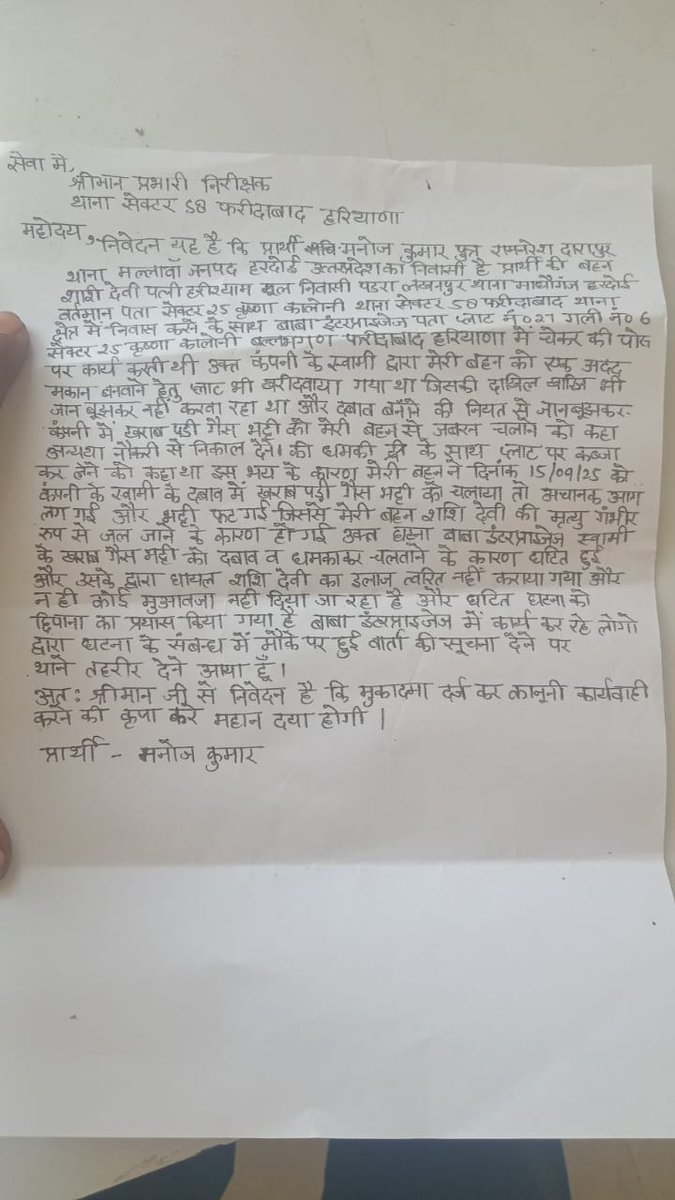 सेवा में,
श्रीमान प्रभारी निरीक्षक
थाना सेक्टर 58 फरीदाबाद हरियाणा
महोदय,
निवेदन यह है कि प्रार्थी मनोज कुमार पुत्र रामनरेश दारापुर
थाना मल्लावॉ जनपद हरदोई उत्तरप्रदेश का निवासी है प्रार्थी की बहन
शशि देवी पत्नी हरीश्याम मूल निवासी पडरा लखनपुर थाना माधौगंज हरदोई
वर्तमान पता सेक्टर 25 कृष्णा कालोनी थाना सेक्टर 58 फरीदाबाद थाना
क्षेत्र में निवास करने के साथ बाबा इंटरप्राइजेज पता प्लाट नं० 27 गली नं० 6
सेक्टर 25 कृष्णा कालोनी बल्लभगण फरीदाबाद हरियाणा में चेकर की पोस्ट
पर कार्य करती थी उक्त कंपनी के स्वामी द्वारा मेरी बहन को एक अदद
मकान बनवाने हेतु प्लाट भी खरीदवाया गया था जिसकी दाखिल खारिज भी
जान बूझकर नहीं करवा रहा था और दबाव बनाने की नियत से जानबूझकर
कंपनी में खराब पडी गैस भट्टी को मेरी बहन से जबरन चलाने को कहा
अन्यथा नौकरी से निकाल देने की धमकी के साथ प्लाट पर कब्जा
कर लेने को कहा था इस भय के कारण मेरी बहन ने दिनांक 15/09/25 को
कंपनी के स्वामी के दबाव में खराब पडी गैस भट्टी को चलाया तो अचानक आग
लग गई और भट्टी फट गई जिससे मेरी बहन शशि देवी की मृत्यु गंभीर
रुप से जल जाने के कारण हो गई उक्त घटना बाबा इंटरप्राइजेज स्वामी
के खराब गैस भट्टी को दबाव व धमकाकर चलवाने के कारण घटित हुई
और उसके द्वारा घायल शशि देवी का इलाज त्वरित नहीं कराया गया और
न ही कोई मुआवजा नहीं दिया जा रहा है और घटित घटना को
छिपाना का प्रयास किया गया है बाबा इंटरप्राइजेज में कार्य कर रहे लोगो
द्वारा घटना के संबन्ध में मौके पर हुई वार्ता की सूचना देने पर
थाने तहरीर देने आया हूँ।
अत: श्रीमान जी से निवेदन है कि मुकादमा दर्ज कर कानूनी कार्यवाही
करने की कृपा करे महान दया होगी।
प्रार्थी - मनोज कुमार